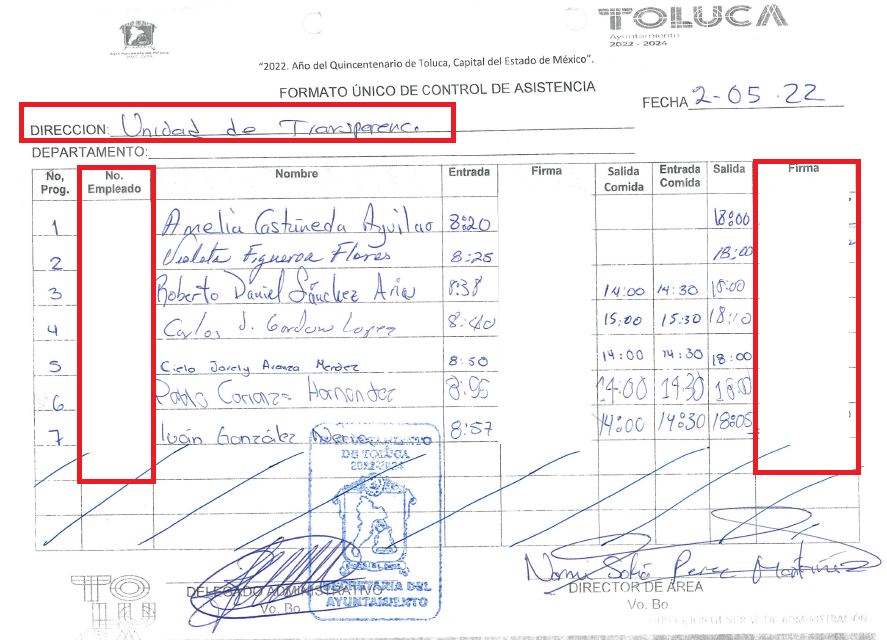 TOLUCA
Ayuntamiento
2022 - 2024
"2022. Año del Quincentenario de Toluca, Capital del Estado de México".
FORMATO ÚNICO DE CONTROL DE ASISTENCIA
FECHA 2-05-22
DIRECCION: Unidad de Transparenc.
DEPARTAMENTO:
No, Prog. No. Empleado Nombre Entrada Firma Salida Comida Entrada Comida Salida Firma
1 Amelia Castañeda Aguilar 8:20 18:00
2 Violeta Figueroa Flores 8:25 18:00
3 Roberto Daniel Sánchez Arias 8:38 14:00 14:30 18:00
4 Carlos J. Gordon Lopez 8:40 15:00 15:30 18:10
5 Cielo Jorely Aranza Mendez 8:50 14:00 14:30 18:00
6 Pablo Carranza Hernández 8:55 14:00 14:30 18:00
7 Iván González 8:57 14:00 14:30 18:05
AYUNTAMIENTO
DE TOLUCA
2022-2024
SECRETARIA DEL
AYUNTAMIENTO
Norma Sofía Perez Martínez
DELEGADO ADMINISTRATIVO DIRECTOR DE ÁREA
Vo. Bo. Vo. Bo.
TOLUCA
DIRECCIÓN GENERAL DE ADMINISTRACIÓN